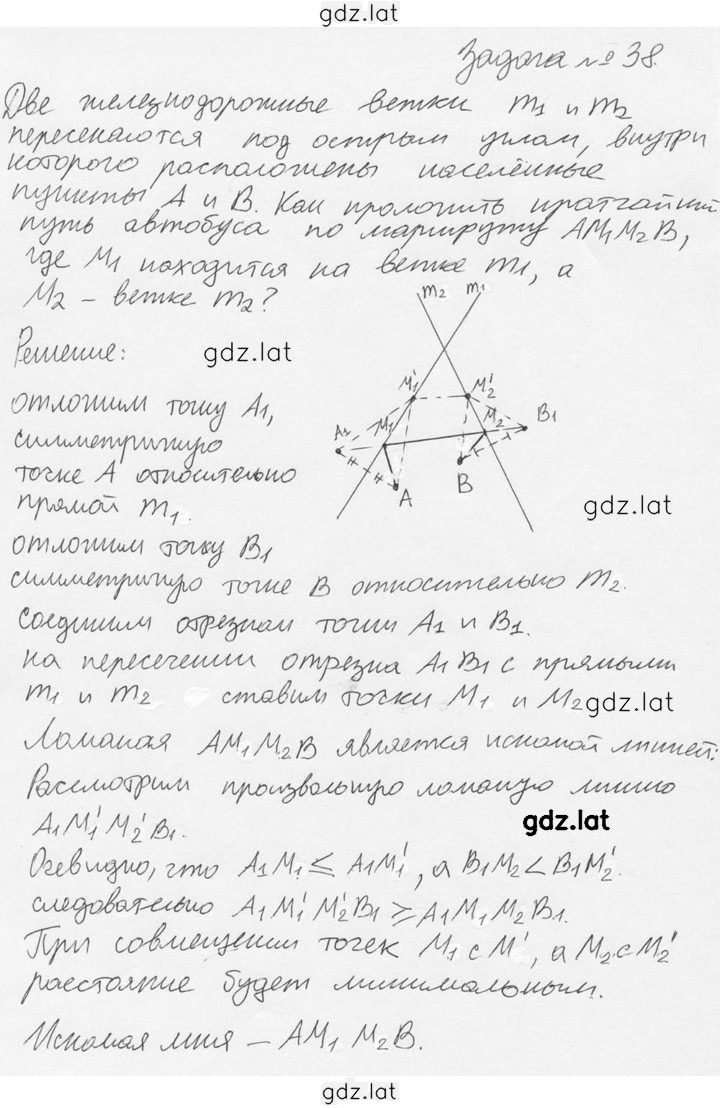 gdz.lat
Задача № 38.
Две железнодорожные ветки m1 и m2
пересекаются под острым углом, внутри
которого расположены населённые
пункты A и B. Как проложить кратчайший
путь автобуса по маршруту AM1M2B,
где M1 находится на ветке m1, а
M2 – ветке m2?
m2 m1
Решение:
gdz.lat
M1' M2'
отложим точку A1,
A1 M1 M2 B1
симметричную
точке A относительно
A B
прямой m1.
gdz.lat
отложим точку B1
симметричную точке B относительно m2.
Соединим отрезком точки A1 и B1.
на пересечении отрезка A1B1 с прямыми
m1 и m2 ставим точки M1 и M2
gdz.lat
Ломаная AM1M2B является искомой линией:
Рассмотрим произвольную ломаную линию
A1M1'M2'B1.
gdz.lat
Очевидно, что A1M1 ≤ A1M1', а B1M2 < B1M2'.
следовательно A1M1'M2'B1 ≥ A1M1M2B1.
При совмещении точек M1 с M', а M2 с M2'
расстояние будет минимальным.
Искомая лния – AM1 M2B.
gdz.lat